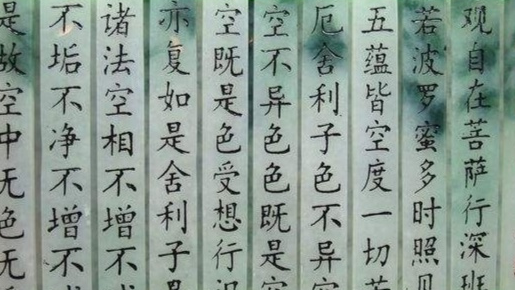 观自在菩萨行深班
若波罗蜜多时照见
五蕴皆空度一切苦
厄舍利子色不异空
空不异色色既是空
空既是色受想行识
亦复如是舍利子是
诸法空相不增不
不垢不净不增不
是故空中无色无